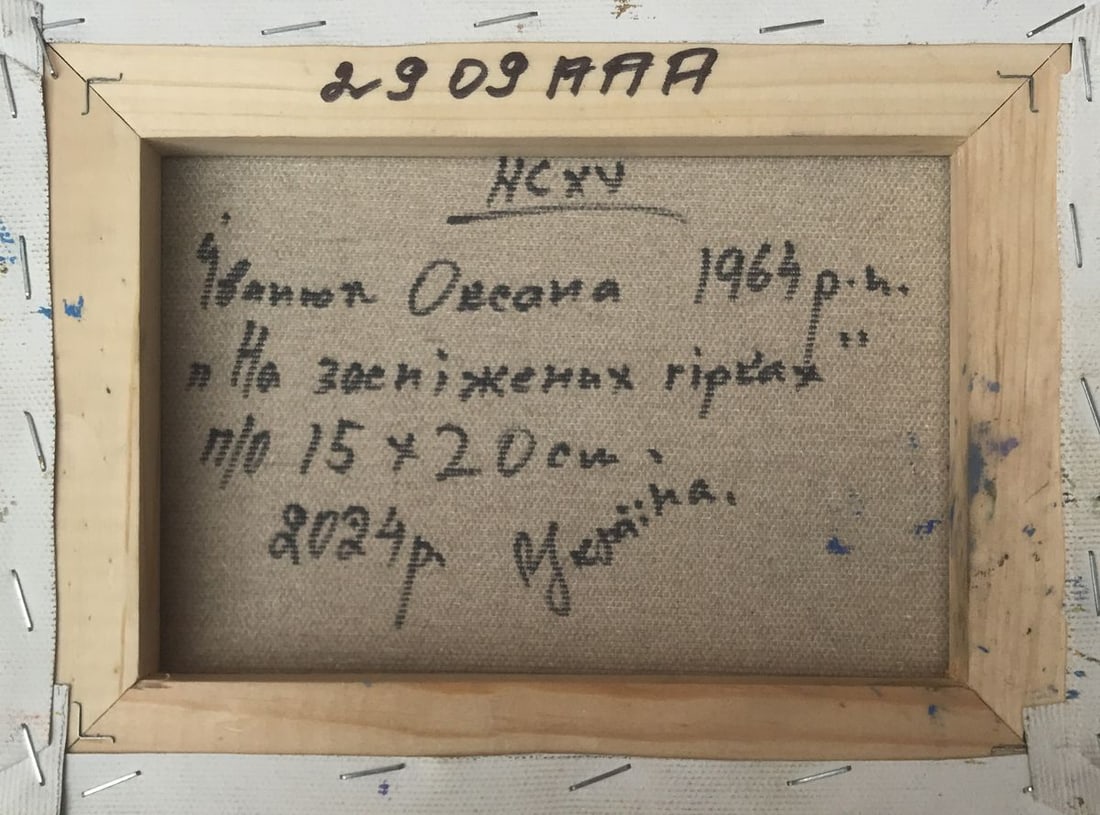 2909ААА
НСХУ
Іванюк Оксана 1964 р.н.
"На засніжених гірках"
п/о 15 х 20 см.
2024р Україна.